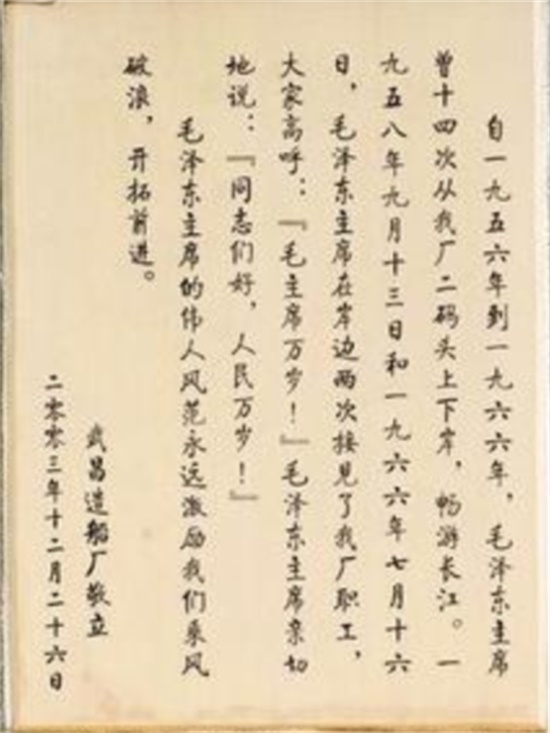 自一九五六年到一九六六年，毛泽东主席
曾十四次从我厂二码头上下岸，畅游长江。一
九五八年九月十三日和一九六六年七月十六
日，毛泽东主席在岸边两次接见了我厂职工，
大家高呼：『毛主席万岁！』毛泽东主席亲切
地说：『同志们好，人民万岁！』
毛泽东主席的伟人风范永远激励我们乘风
破浪，开拓前进。
武昌造船厂敬立
二零零三年十二月二十六日